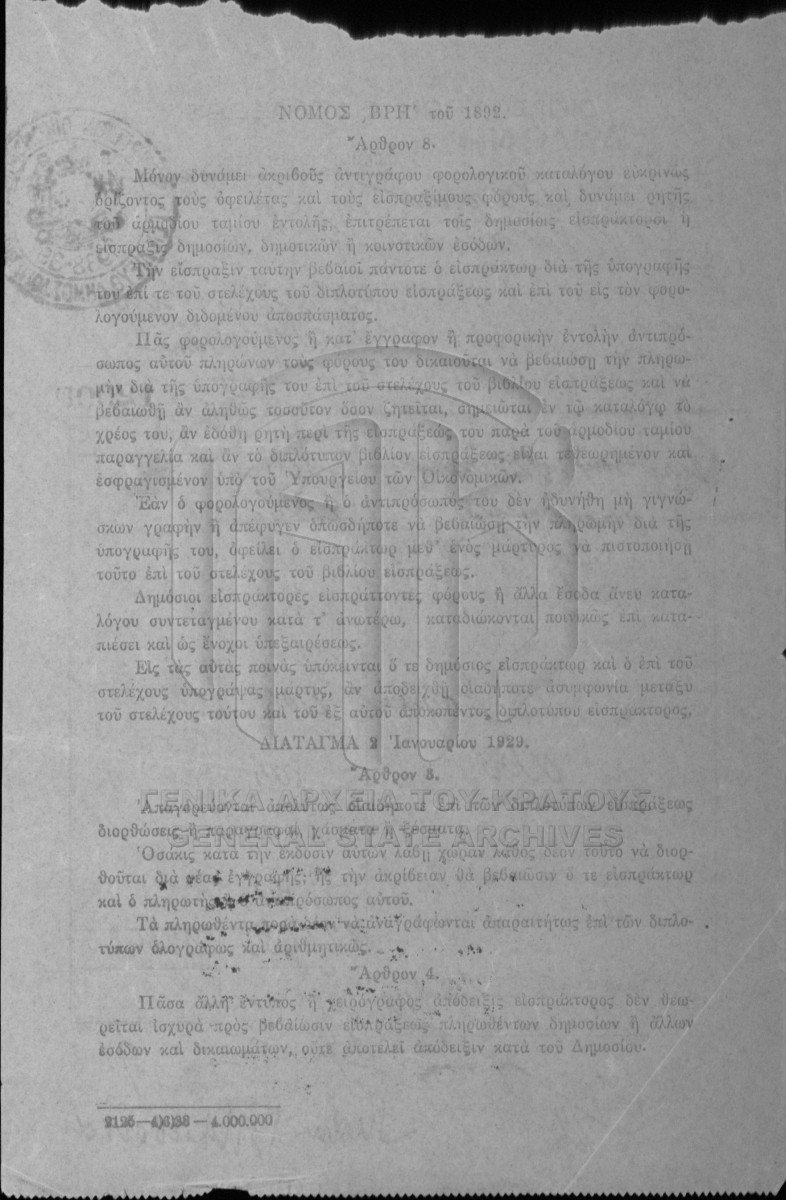 ΝΟΜΟΣ ,ΒΡΗ' τοῦ 1892.
Ἄρθρον 8.
Μόνον δυνάμει ἀκριβοῦς ἀντιγράφου φορολογικοῦ καταλόγου εὐκρινῶς
ὁρίζοντος τοὺς ὀφειλέτας καὶ τοὺς εἰσπραξίμους φόρους καὶ δυνάμει ρητῆς
τοῦ ἁρμοδίου ταμίου ἐντολῆς, ἐπιτρέπεται τοῖς δημοσίοις εἰσπράκτορσι ἡ
εἴσπραξις δημοσίων, δημοτικῶν ἢ κοινοτικῶν ἐσόδων.
Τὴν εἴσπραξιν ταύτην βεβαιοῖ πάντοτε ὁ εἰσπράκτωρ διὰ τῆς ὑπογραφῆς
του ἐπί τε τοῦ στελέχους τοῦ διπλοτύπου εἰσπράξεως καὶ ἐπὶ τοῦ εἰς τὸν φορο-
λογούμενον διδομένου ἀποσπάσματος.
Πᾶς φορολογούμενος ἢ κατ' ἔγγραφον ἢ προφορικὴν ἐντολὴν ἀντιπρό-
σωπος αὐτοῦ πληρώνων τοὺς φόρους του δικαιοῦται νὰ βεβαιώσῃ τὴν πληρω-
μὴν διὰ τῆς ὑπογραφῆς του ἐπὶ τοῦ στελέχους τοῦ βιβλίου εἰσπράξεως καὶ νὰ
βεβαιωθῇ ἂν ἀληθῶς τοσοῦτον ὅσον ζητεῖται, σημειῶται ἐν τῷ καταλόγῳ τὸ
χρέος του, ἂν ἐδόθη ρητὴ περὶ τῆς εἰσπράξεώς του παρὰ τοῦ ἁρμοδίου ταμίου
παραγγελία καὶ ἂν τὸ διπλότυπον βιβλίον εἰσπράξεως εἶναι τεθεωρημένον καὶ
ἐσφραγισμένον ὑπὸ τοῦ Ὑπουργείου τῶν Οἰκονομικῶν.
Ἐὰν ὁ φορολογούμενος ἢ ὁ ἀντιπρόσωπός του δὲν ἠδυνήθη μὴ γιγνώ-
σκων γραφὴν ἢ ἀπέφυγεν ὁπωσδήποτε νὰ βεβαιώσῃ τὴν πληρωμὴν διὰ τῆς
ὑπογραφῆς του, ὀφείλει ὁ εἰσπράκτωρ μεθ' ἑνὸς μάρτυρος νὰ πιστοποιήσῃ
τοῦτο ἐπὶ τοῦ στελέχους τοῦ βιβλίου εἰσπράξεως.
Δημόσιοι εἰσπράκτορες εἰσπράττοντες φόρους ἢ ἄλλα ἔσοδα ἄνευ κατα-
λόγου συντεταγμένου κατὰ τ' ἀνωτέρω, καταδιώκονται ποινικῶς ἐπὶ κατα-
πιέσει καὶ ὡς ἔνοχοι ὑπεξαιρέσεως.
Εἰς τὰς αὐτὰς ποινὰς ὑπόκεινται ὅ τε δημόσιος εἰσπράκτωρ καὶ ὁ ἐπὶ τοῦ
στελέχους ὑπογράψας μάρτυς, ἂν ἀποδειχθῇ οἱαδήποτε ἀσυμφωνία μεταξὺ
τοῦ στελέχους τούτου καὶ τοῦ ἐξ αὐτοῦ ἀποκοπέντος διπλοτύπου εἰσπράκτορος.
ΔΙΑΤΑΓΜΑ 2 Ἰανουαρίου 1929.
Ἄρθρον 3.
ΓΕΝΙΚΑ ΑΡΧΕΙΑ ΤΟΥ ΚΡΑΤΟΥΣ
Ἀπαγορεύονται ἀπολύτως οἱαιδήποτε ἐπὶ τῶν διπλοτύπων εἰσπράξεως
διορθώσεις ἢ παραγραφαί, χάσματα ἢ ξέσματα.
GENERAL STATE ARCHIVES
Ὁσάκις κατὰ τὴν ἔκδοσιν αὐτῶν λάβῃ χώραν λάθος δέον τοῦτο νὰ διορ-
θοῦται διὰ νέας ἐγγραφῆς, ἧς τὴν ἀκρίβειαν θὰ βεβαιῶσιν ὅ τε εἰσπράκτωρ
καὶ ὁ πληρωτὴς ἢ ὁ ἀντιπρόσωπος αὐτοῦ.
Τὰ πληρωθέντα ποσὰ δέον νὰ ἀναγράφωνται ἀπαραιτήτως ἐπὶ τῶν διπλο-
τύπων ὁλογράφως καὶ ἀριθμητικῶς.
Ἄρθρον 4.
Πᾶσα ἄλλη ἔντυπος ἢ χειρόγραφος ἀπόδειξις εἰσπράκτορος δὲν θεω-
ρεῖται ἰσχυρὰ πρὸς βεβαίωσιν εἰσπράξεως πληρωθέντων δημοσίων ἢ ἄλλων
ἐσόδων καὶ δικαιωμάτων, οὔτε ἀποτελεῖ ἀπόδειξιν κατὰ τοῦ Δημοσίου.
2125—4)6)38 — 4.000.000